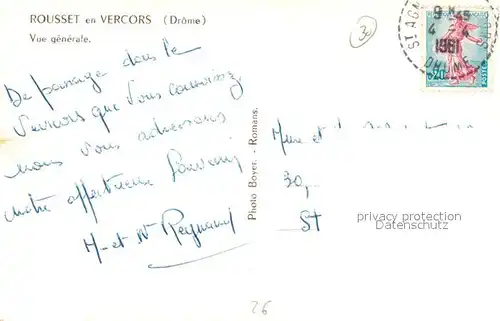 ROUSSET en VERCORS (Drôme)
Vue générale.
De passage dans le
Vercors que vous connaissez
nous vous adressons
notre affectueux souvenir
M. et Me Reynaud
Photo Boyer. - Romans.
30
ST AGN
9 H 45
4 - 4
1961
DRÔME
0,20
POSTES
Mme et
30,
St
privacy protection
Datenschutz
26